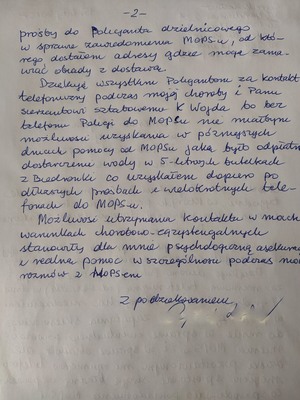 - 2 -
prośby do Policjanta dzielnicowego
w sprawie zawiadomienia MOPS-u, od któ-
rego dostałam adresy gdzie mogę zama-
wiać obiady z dostawą.
Dziękuję wszystkim Policjantom za kontakt
telefoniczny podczas mojej choroby i Panu
Sierżantowi sztabowemu K Wojda bo bez
telefonu Policji do MOPSu nie miałabym
możliwości uzyskania w późniejszych
dniach pomocy od MOPSu jaką było odpłatne
dostarczenie wody w 5-litrowych butelkach
z Biedronki co uzyskałam dopiero po
dłuższych prośbach i wielokrotnych tele-
fonach do MOPS-u.
Możliwość utrzymania kontaktu w moich
warunkach chorobowo-egzystencjalnych
stanowiły dla mnie psychologiczną asekurację
i realną pomoc w szczególności podczas moich
rozmów z MOPSem
Z podziękowaniem,